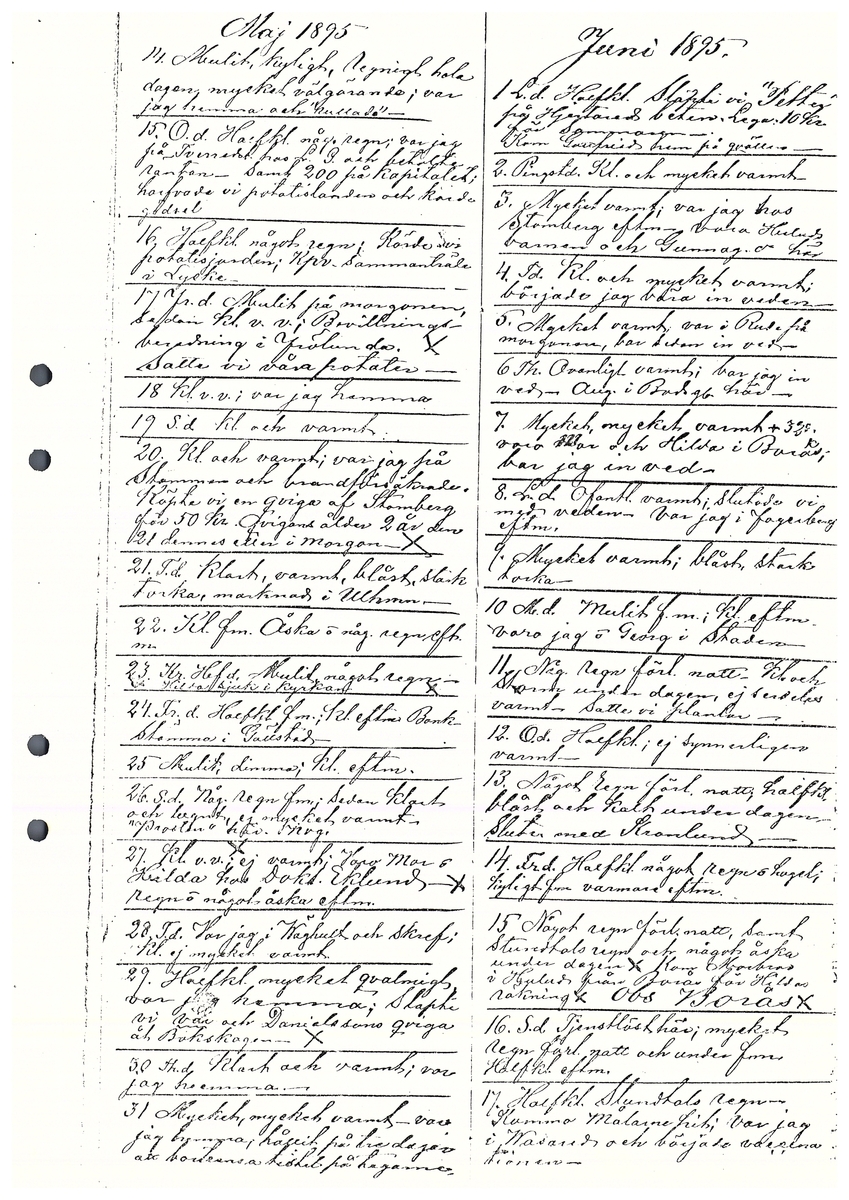 Maj 1895
14. Mulit, kyligt, regnigt hela
dagen, mycket välgörande; var
jag hemma och "kullade" —
15. O.d. Halfkl. någ. regn; var jag
på hos L. P. och betalte
räntan — samt 200 på kapitalet;
harfvade vi potatislanden och körde
gödsel
16. Halfkl. något regn; Körde vi
potatisjorden; Kpv. Sammanträde
i Lycke —
17 Fr.d. Mulit på morgonen,
sedan kl. v. v.; Bevillnings-
beredning i Frölunda. X
Satte vi våra potater —
18 kl. v.v.; var jag hemma
19 S.d. kl och varmt.
20. Kl. och varmt; var jag på
Stommen och brandförsäkrade.
Köpte vi en qviga af Stomberg
för 50 kr. Qvigans ålder 2 år den
21 dennes eller i morgon — X
21. T.d. Klart, varmt, blåst, stark
torka, marknad i Ulhmn. —
22. Kl. fm. Åska o någ. regn eft.
m.
23. Kr. Hef.d. Mulit, något regn —
Hilda sjuk i kyrkan X
24. Fr.d. Halfkl. f.m.; kl. eftm. Bank-
stämma i Gällstad —
25 Mulit, dimma; kl. eftm.
26. S.d. Någ. regn fm; sedan klart
och lugnt, ej mycket varmt —
"Prosten" här.
27. Kl. v.v.; ej varmt; Voro Mor o
Hilda hos Dokt. Eklund — X
regn o något åska eftm.
28. T.d. Var jag i Wäghult och skref;
kl. ej mycket varmt
29. Halfkl. mycket qvalmigt,
var jag hemma; Släpte
vi vår och Danielssons qviga
åt Bokskogen — X
30 Th.d. Klart och varmt; var
jag hemma. —
31 Mycket, mycket varmt — var
jag hemma; hållit på tre dagar
att tistel på hagarne
Juni 1895.
1 L.d. Halfkl. Släpte vi "Petter"
på beten. Lega: 10 kr
för sommaren —
Kom Gottfried hem på qvällen —
2. Pingstd. Kl. och mycket varmt
3. Mycket varmt; var jag hos
Stomberg eftm — voro Hulu
barnen och Gunnag. här
4. T.d. Kl. och mycket varmt;
började jag bära in veden —
5. Mycket varmt; var i Rude på
morgonen, bar sedan in ved —
6 Th. Ovanligt varmt; bar jag in
ved — Aug. i här —
7. Mycket, mycket varmt +
voro Mor och Hilda i Borås;
bar jag in ved —
8. L.d. Ofantl. varmt; slutade vi
med veden — Var jag i Fagerberg
eftm.
9. Mycket varmt; blåst, stark
torka —
10 M.d. Mulit f.m.; kl. eftm.
voro jag o Georg i Staden
11. Någ. regn förl. natt — Kl och
under dagen, ej serdeles
varmt — Satte vi plantor —
12. O.d. Halfkl; ej synnerligen
varmt —
13. Något regn förl. natt; halfkl,
blåst och kallt under dagen —
Slutar med Kronlund —
14. Frd. Halfkl. något regn o hagel;
kyligt fm varmare eftm.
15 Något regn förl. natt, samt
stundtals regn och något åska
under dagen X Kom Morbror
i Hulu från Borås för Hildas
räkning X Obs Borås X
16. S.d. Tjenstlöst här; mycket
regn förl. natt och under fm.
Halfkl. eftm.
17. Halfkl. Stundtals regn —
Kommo Målarne hit; var jag
i och började vaccina
tionen —